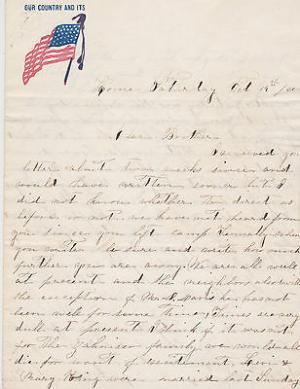 OUR COUNTRY AND ITS
Home Saturday Oct
Dear Brother
I received you
letter about two weeks since and
would have written sooner but I
did not know whether to direct as
before or not we have not heard from
you since you left camp when
you write be sure and write how much
further you are away We are all well
at present and the neighbors also with
the exception of Mr Mans he has not
been well for some time Times is very
dull at present I think if it was not
for the Johnson family we would all
die for want of excitement &
Mary King were married last Sunday